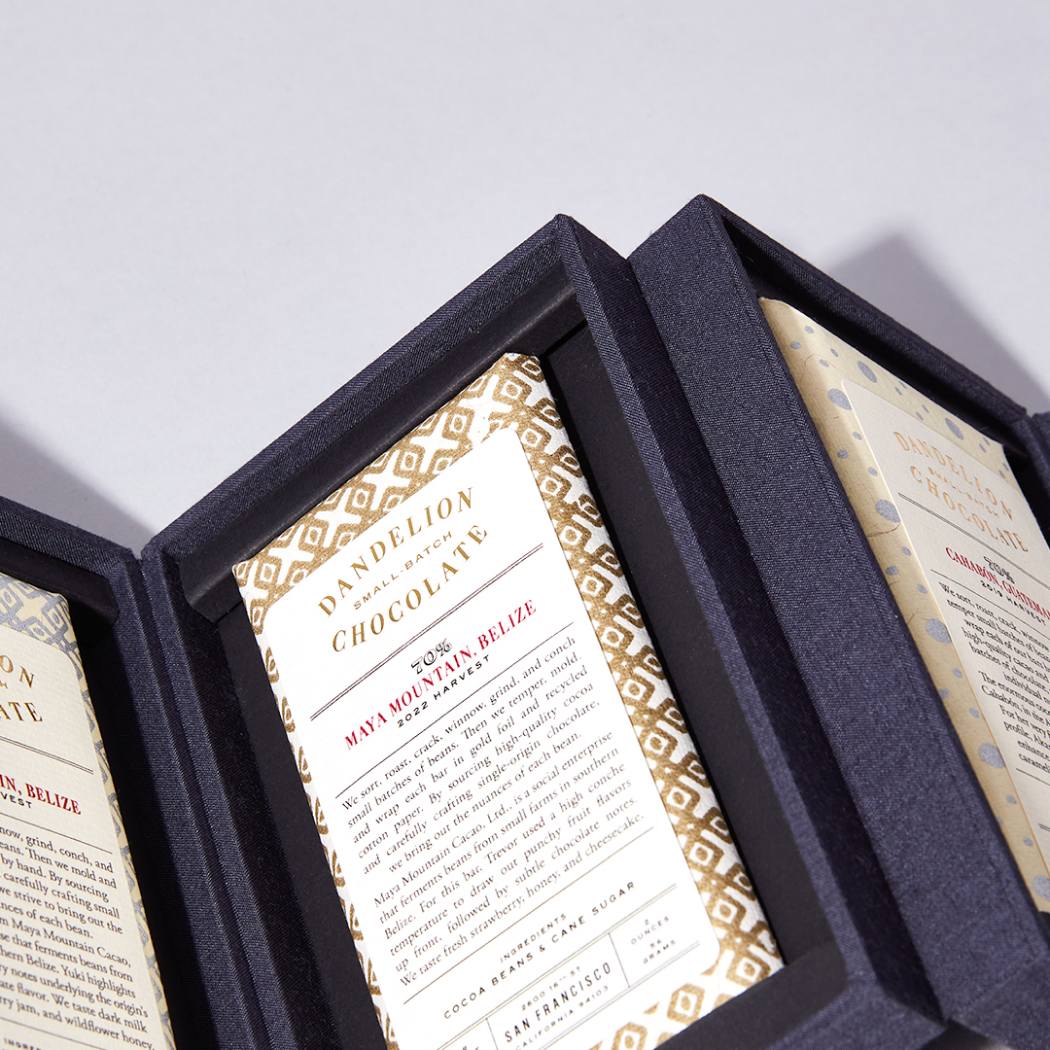 DANDELION
SMALL-BATCH
CHOCOLATE
70%
MAYA MOUNTAIN, BELIZE
2022 HARVEST
We sort, roast, crack, winnow, grind, and conch
small batches of beans. Then we temper, mold
and wrap each bar in gold foil and recycled
cotton paper. By sourcing high-quality cocoa
and carefully crafting single-origin chocolate,
we bring out the nuances of each bean.
Maya Mountain Cacao, Ltd., is a social enterprise
that ferments beans from small farms in southern
Belize. For this bar, Trevor used a high conche
temperature to draw out punchy fruit flavors
up front, followed by subtle chocolate notes.
We taste fresh strawberry, honey, and cheesecake.
INGREDIENTS
COCOA BEANS & CANE SUGAR
2600 16TH ST
SAN FRANCISCO
CALIFORNIA 94103
2
OUNCES
56
GRAMS
BELIZE
now, grind, conch, and
Then we mold and
by hand. By sourcing
carefully crafting small
we strive to bring out the
of each bean.
Maya Mountain Cacao,
that ferments beans from
Belize. Yuki highlights
notes underlying the origin's
flavor. We taste dark milk
jam, and wildflower honey.
DANDELION
SMALL-BATCH
CHOCOLATE
70%
CAHABÓN,
2019 HARVEST
We sort, roast, crack, winnow
temper small batches of
wrap each of our bars
high-quality cacao and
batches of chocolate,
individual
The enormous
Cahabón,
For her
profile,